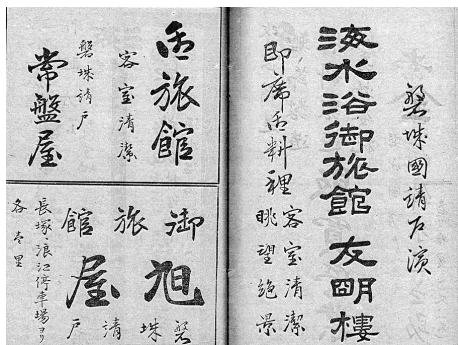 磐城國請戸濱
海水浴御旅館 友朙樓
即席御料理
客室清潔
眺望絶景
御旅館
客室清潔
磐城請戸
常盤屋
御旅館
旭屋
磐城請戸
長塚浪江停車場ヨリ
各壱里